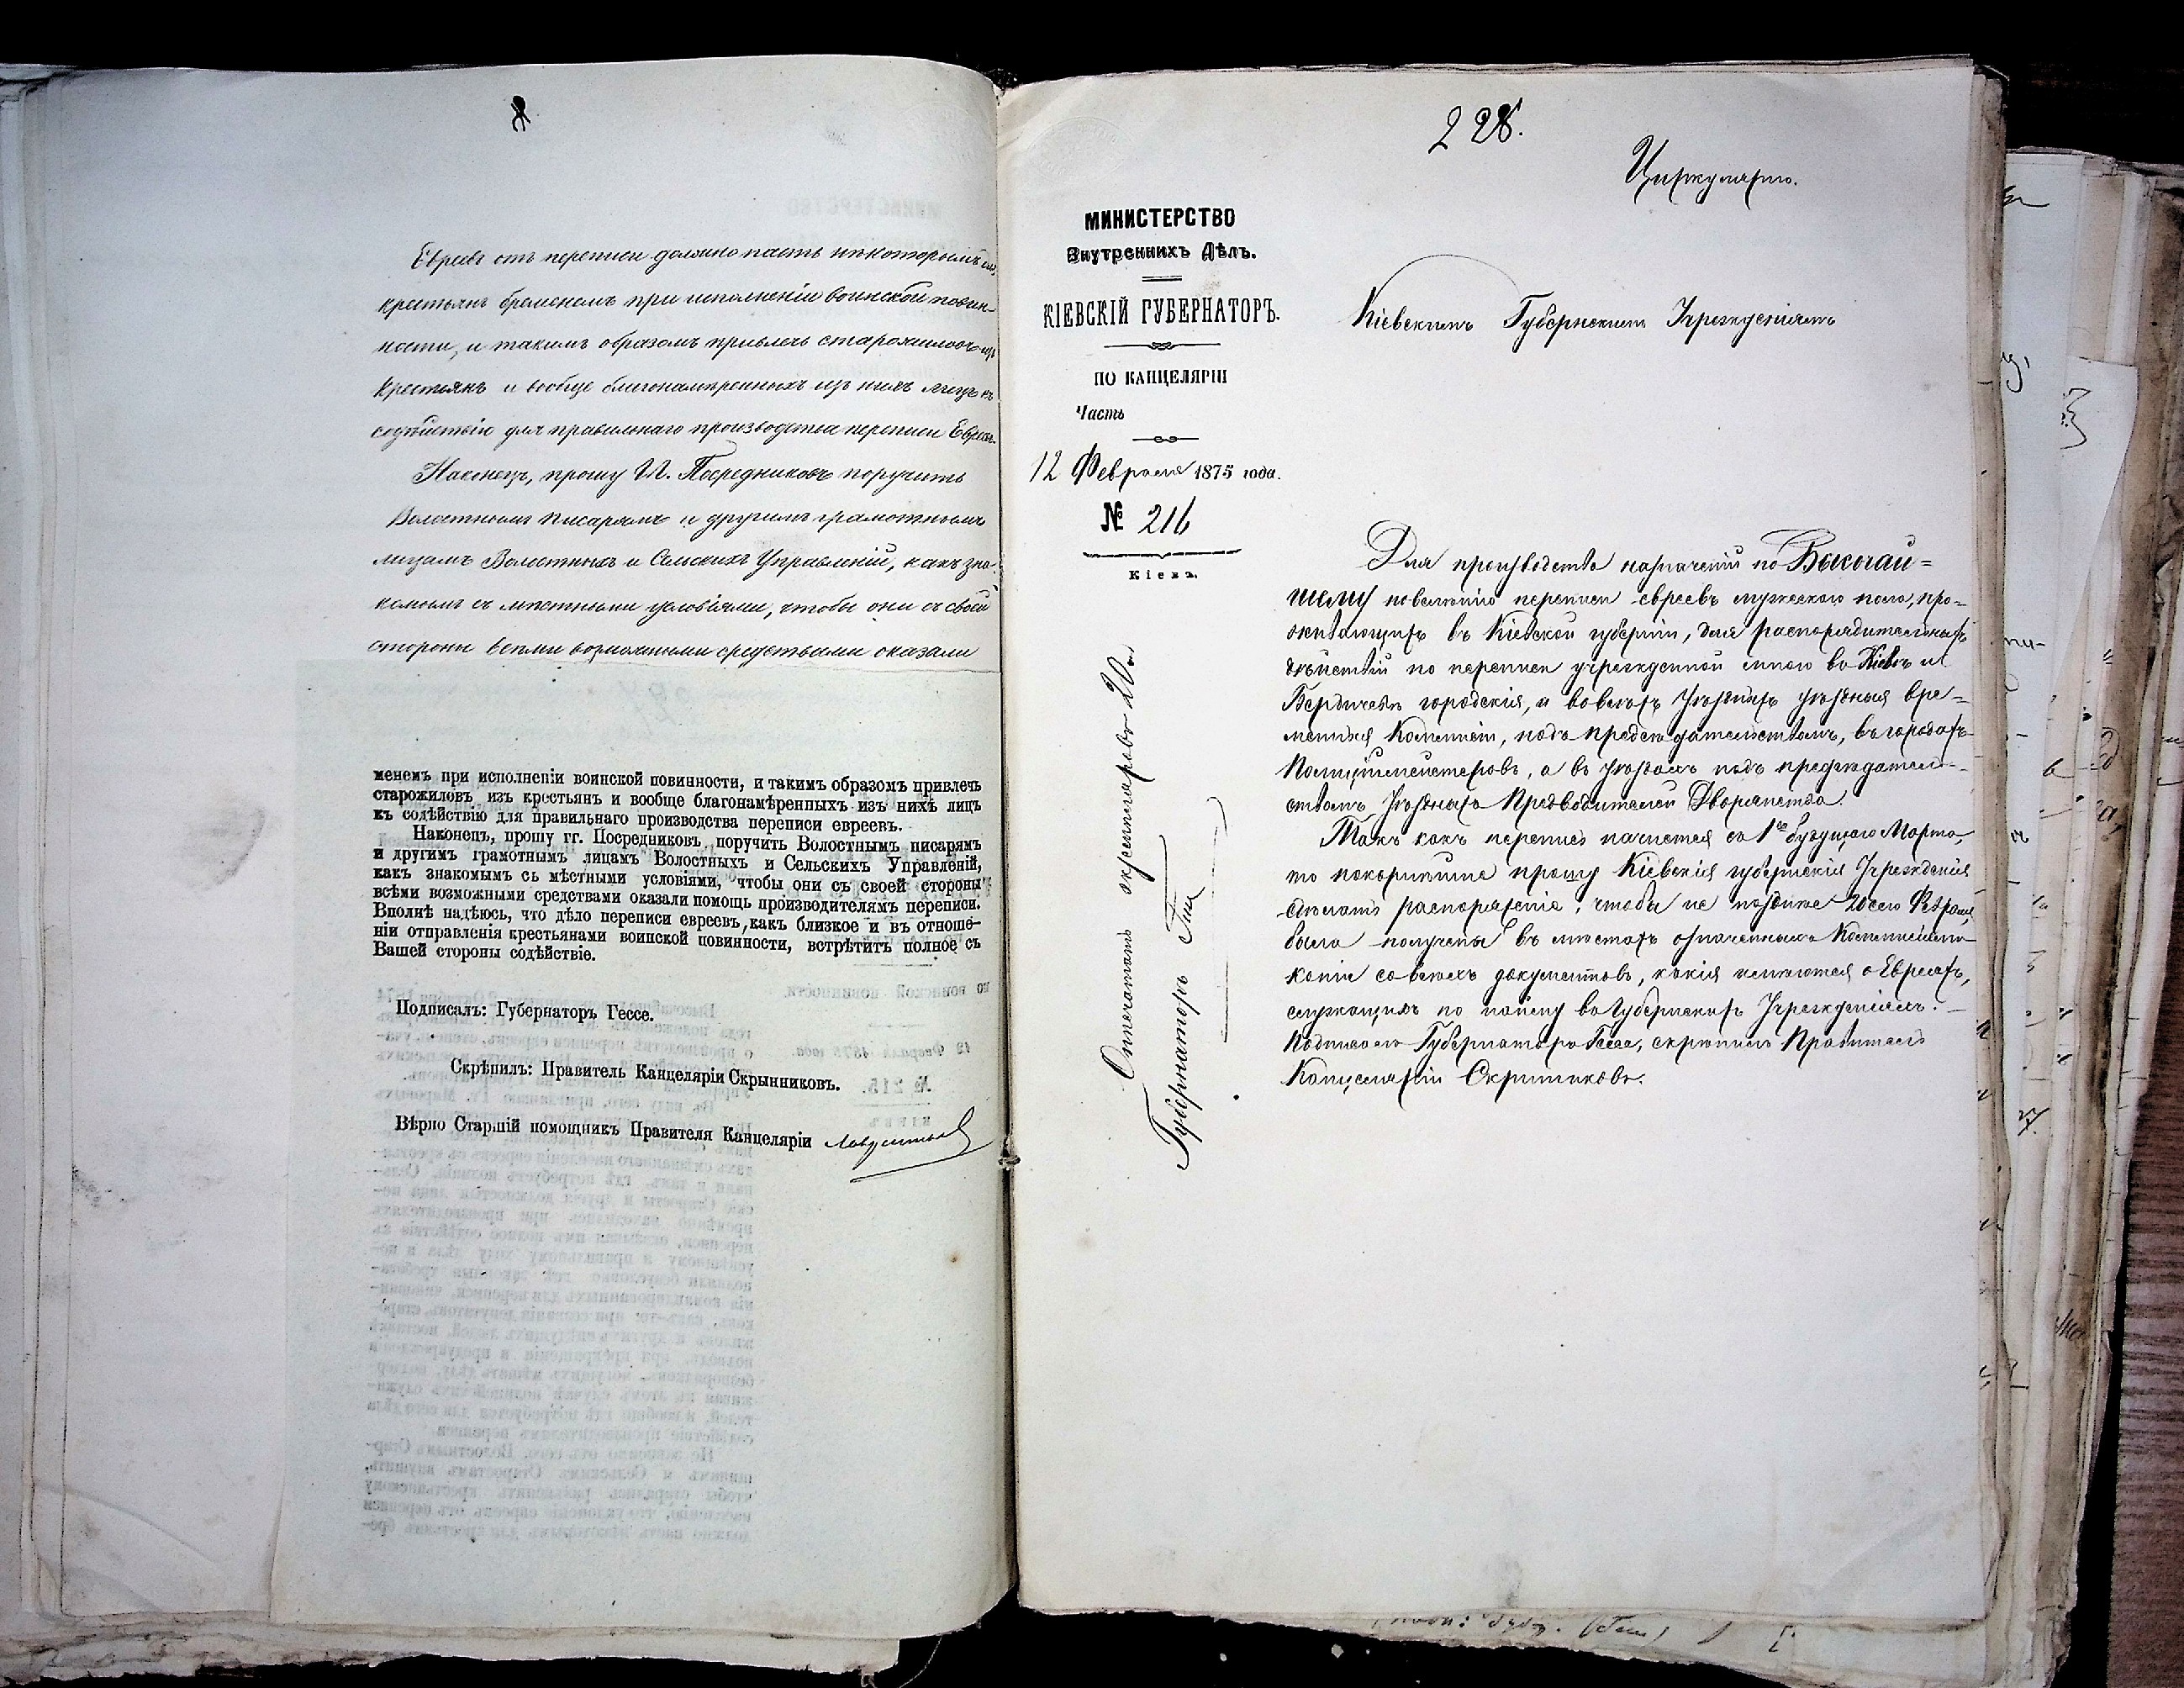 Евреевъ отъ переписи должно пасть нѣкоторымъ для
крестьянъ бременемъ при исполненіи воинской повин-
ности, и такимъ образомъ привлечь старожиловъ изъ
крестьянъ и вообще благонамѣренныхъ изъ нихъ лицъ къ
содѣйствію для правильнаго производства переписи Евреевъ.
Наконецъ, прошу Гг. Посредниковъ поручить
Волостнымъ писарямъ и другимъ грамотнымъ
лицамъ Волостныхъ и Сельскихъ Управленій, какъ зна-
комымъ съ мѣстными условіями, чтобы они съ своей
стороны всѣми возможными средствами оказали
менемъ при исполненіи воинской повинности, и такимъ образомъ привлечь
старожиловъ изъ крестьянъ и вообще благонамѣренныхъ изъ нихъ лицъ
къ содѣйствію для правильнаго производства переписи евреевъ.
Наконецъ, прошу гг. Посредниковъ поручить Волостнымъ писарямъ
и другимъ грамотнымъ лицамъ Волостныхъ и Сельскихъ Управленій,
какъ знакомымъ съ мѣстными условіями, чтобы они съ своей стороны
всѣми возможными средствами оказали помощь производителямъ переписи.
Вполнѣ надѣюсь, что дѣло переписи евреевъ, какъ близкое и въ отноше-
ніи отправленія крестьянами воинской повинности, встрѣтитъ полное съ
Вашей стороны содѣйствіе.
Подписалъ: Губернаторъ Гессе.
Скрѣпилъ: Правитель Канцеляріи Скрынниковъ.
Вѣрно Старшій помощникъ Правителя Канцеляріи
228.
Циркулярно.
МИНИСТЕРСТВО
Внутреннихъ Дѣлъ.
КІЕВСКІЙ ГУБЕРНАТОРЪ.
ПО КАНЦЕЛЯРІИ
Часть
12 Февраля 1875 года.
№ 216
Кіевъ.
Кіевскимъ Губернскимъ Учрежденіямъ
Отпечатать экземпляровъ 20
Губернаторъ Гессе
Для производства назначенной по Высочай=
шему повелѣнію переписи евреевъ мужескаго пола, про=
живающихъ въ Кіевской губерніи, для распорядительныхъ
дѣйствій по переписи учреждены мною въ Кіевѣ и
Бердичевѣ городскія, а во всѣхъ уѣздахъ уѣздныя вре=
менныя Коммисіи, подъ предсѣдательствомъ, въ городахъ
Полиціймейстеровъ, а въ уѣздахъ подъ предсѣдатель-
ствомъ Уѣздныхъ Предводителей Дворянства.
Такъ какъ перепись начнется съ 1го будущаго Марта,
то покорнѣйше прошу Кіевскія губернскія Учрежденія
сдѣлать распоряженіе, чтобы не позднѣе 20 сего Февраля
были получены въ мѣстахъ означенныхъ Коммисіями
копіи со всѣхъ документовъ, какія имѣются о Евреяхъ,
служащихъ по найму въ Губернскихъ Учрежденіяхъ.
Подписалъ Губернаторъ Гессе, скрѣпилъ Правитель
Канцеляріи Скрынниковъ.